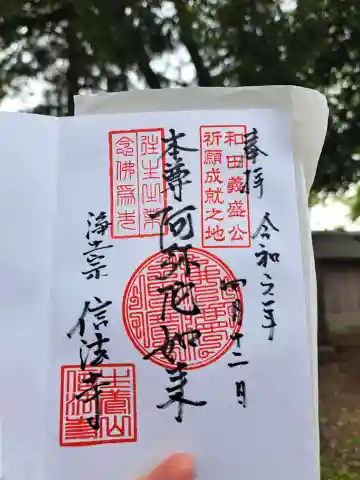 奉拝
令和六年
四月十二日
和田義盛公
祈願成就之地
本尊阿弥陀如来
往生之業
念佛為先
浄土宗
信法寺